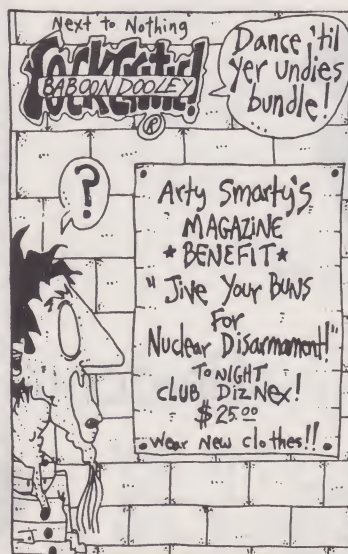 Next to Nothing
ROCKCRITIC!
BABOON DOOLEY
®
Dance 'til
yer undies
bundle!
?
Arty Smarty's
MAGAZINE
★ BENEFIT ★
"Jive Your Buns
For
Nuclear Disarmament!"
TONIGHT
CLUB Diz Nex!
$25.00
Wear New clothes!!